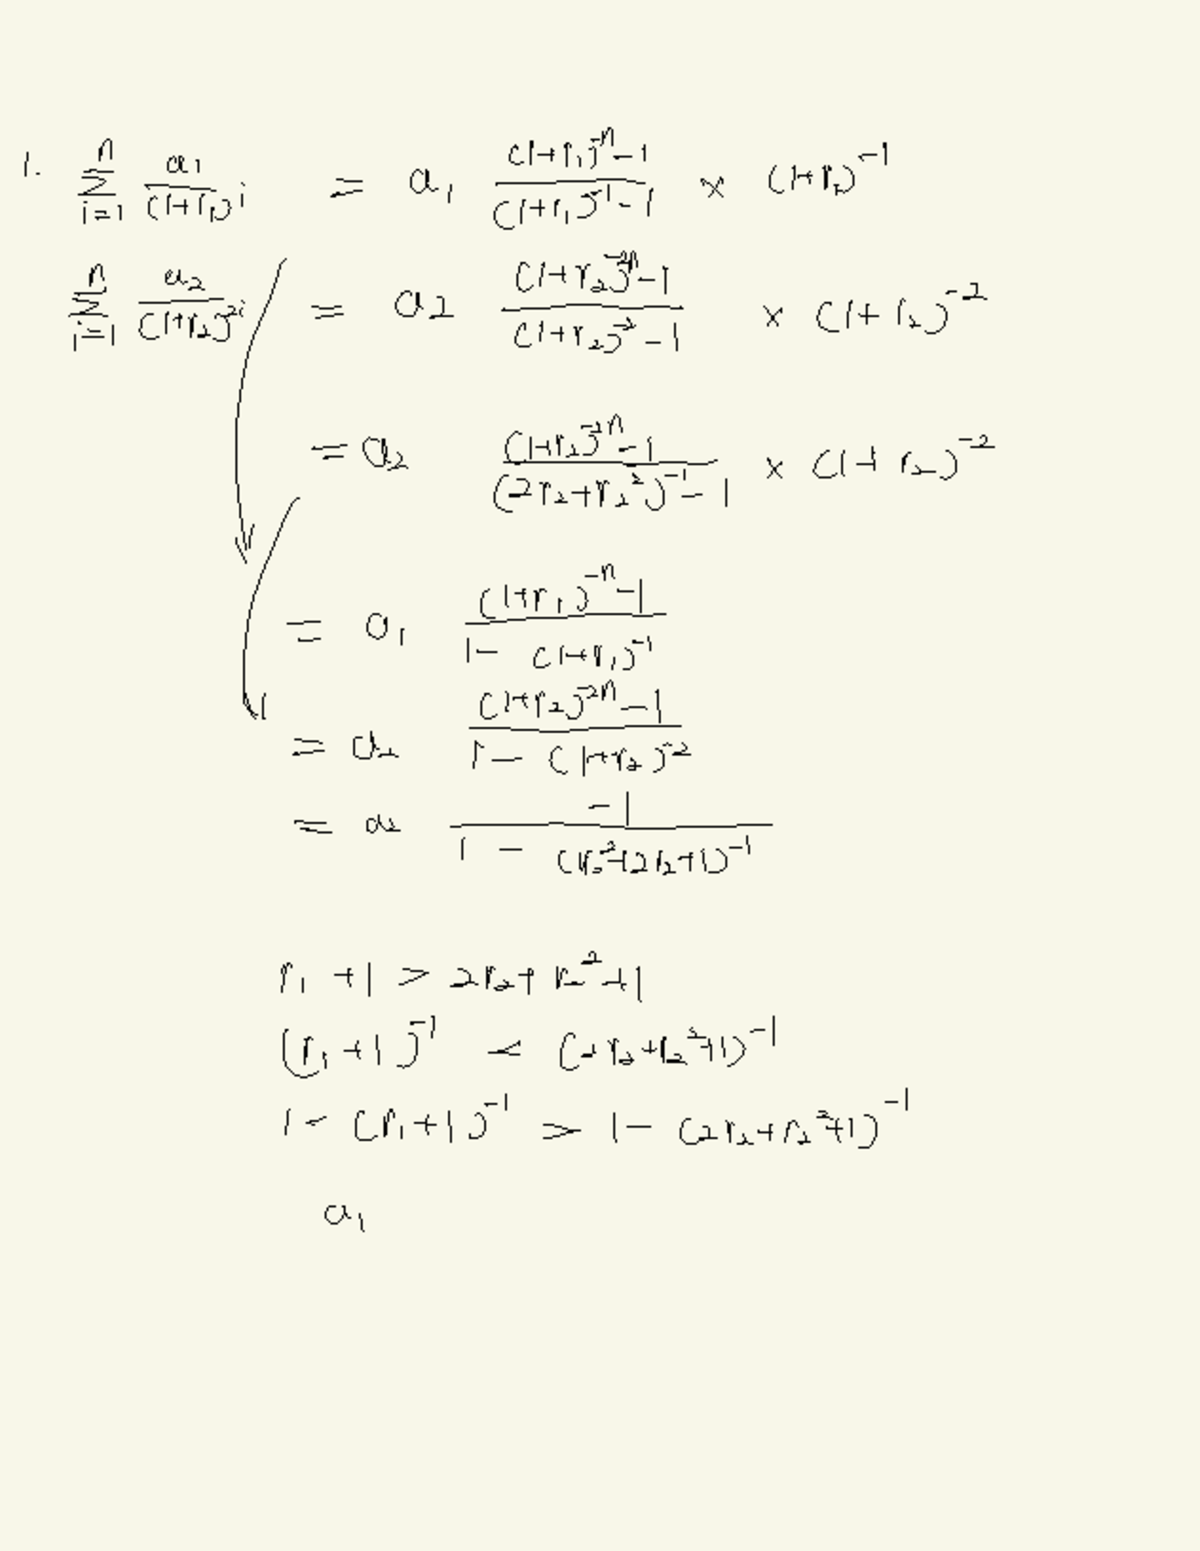 1. \sum_{i=1}^{n} \frac{a_1}{(1+r_1)^i} = a_1 \frac{(1+r_1)^{-n}-1}{(1+r_1)^{-1}-1} × (1+r_1)^{-1}
\sum_{i=1}^{n} \frac{a_2}{(1+r_2)^{2i}} = a_2 \frac{(1+r_2)^{-2n}-1}{(1+r_2)^{-2}-1} × (1+r_2)^{-2}
= a_2 \frac{(1+r_2)^{-2n}-1}{(2r_2+r_2^2)^{-1}-1} × (1+r_2)^{-2}
= a_1 \frac{(1+r_1)^{-n}-1}{1-(1+r_1)^{-1}}
= a_2 \frac{(1+r_2)^{-2n}-1}{1-(1+r_2)^{-2}}
= a_2 \frac{-1}{1-(r_2^2+2r_2+1)^{-1}}
r_1+1 > 2r_2+r_2^2+1
(r_1+1)^{-1} < (2r_2+r_2^2+1)^{-1}
1-(r_1+1)^{-1} > 1-(2r_2+r_2^2+1)^{-1}
a_1